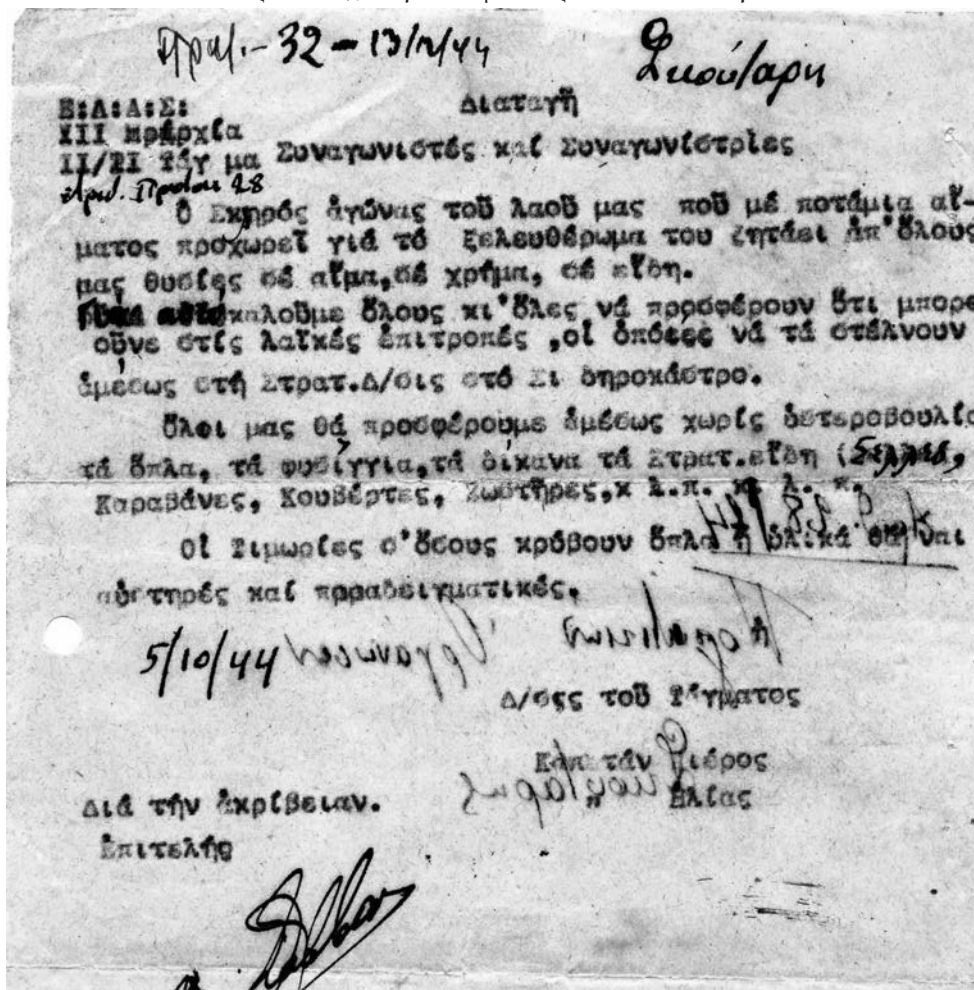 32 - 13/12/44
Σκούταρη
Ε:Λ:Α:Σ: Διαταγή
ΙΙΙ Μραρχία
Συναγωνιστές καί Συναγωνίστριες
28
Ὁ Σκηρός ἀγώνας τοῦ λαοῦ μας πού μέ ποτάμια αἵ-
ματος προχωρεῖ γιά τό ξελευθέρωμα του ζητάει ἀπ' ὅλους
μας θυσίες σέ αἵμα, σέ χρῆμα, σέ εἴδη.
καλοῦμε ὅλους κι' ὅλες νά προσφέρουν ὅτι μπορ
οῦνε στίς λαϊκές ἐπιτροπές ,οἱ ὁπόεες νά τά στέλνουν
ἀμέσως στή Στρατ.Δ/σις στό Σι δηροκάστρο.
Ὅλοι μας θά προσφέρουμε ἀμέσως χωρίς ὑστεροβουλία
τά ὅπλα, τά φυσίγγια,τά δίκανα τά Στρατ.εἴδη (
Καραβάνες, Κουβέρτες, Ζωστῆρες,κ λ.π. κ λ. π.
Οἱ Τιμωρίες σ'ὅσους κρύβουν ὅπλα ἤ ὑλικά θά ναι
αὐστηρές καί πρραδειγματικές.
5/10/44
Δ/σςς τοῦ Τάγματος
Καπετάν Πιέρος
Ἠλίας
Διά τήν ἀκρίβειαν.
Ἐπιτελής